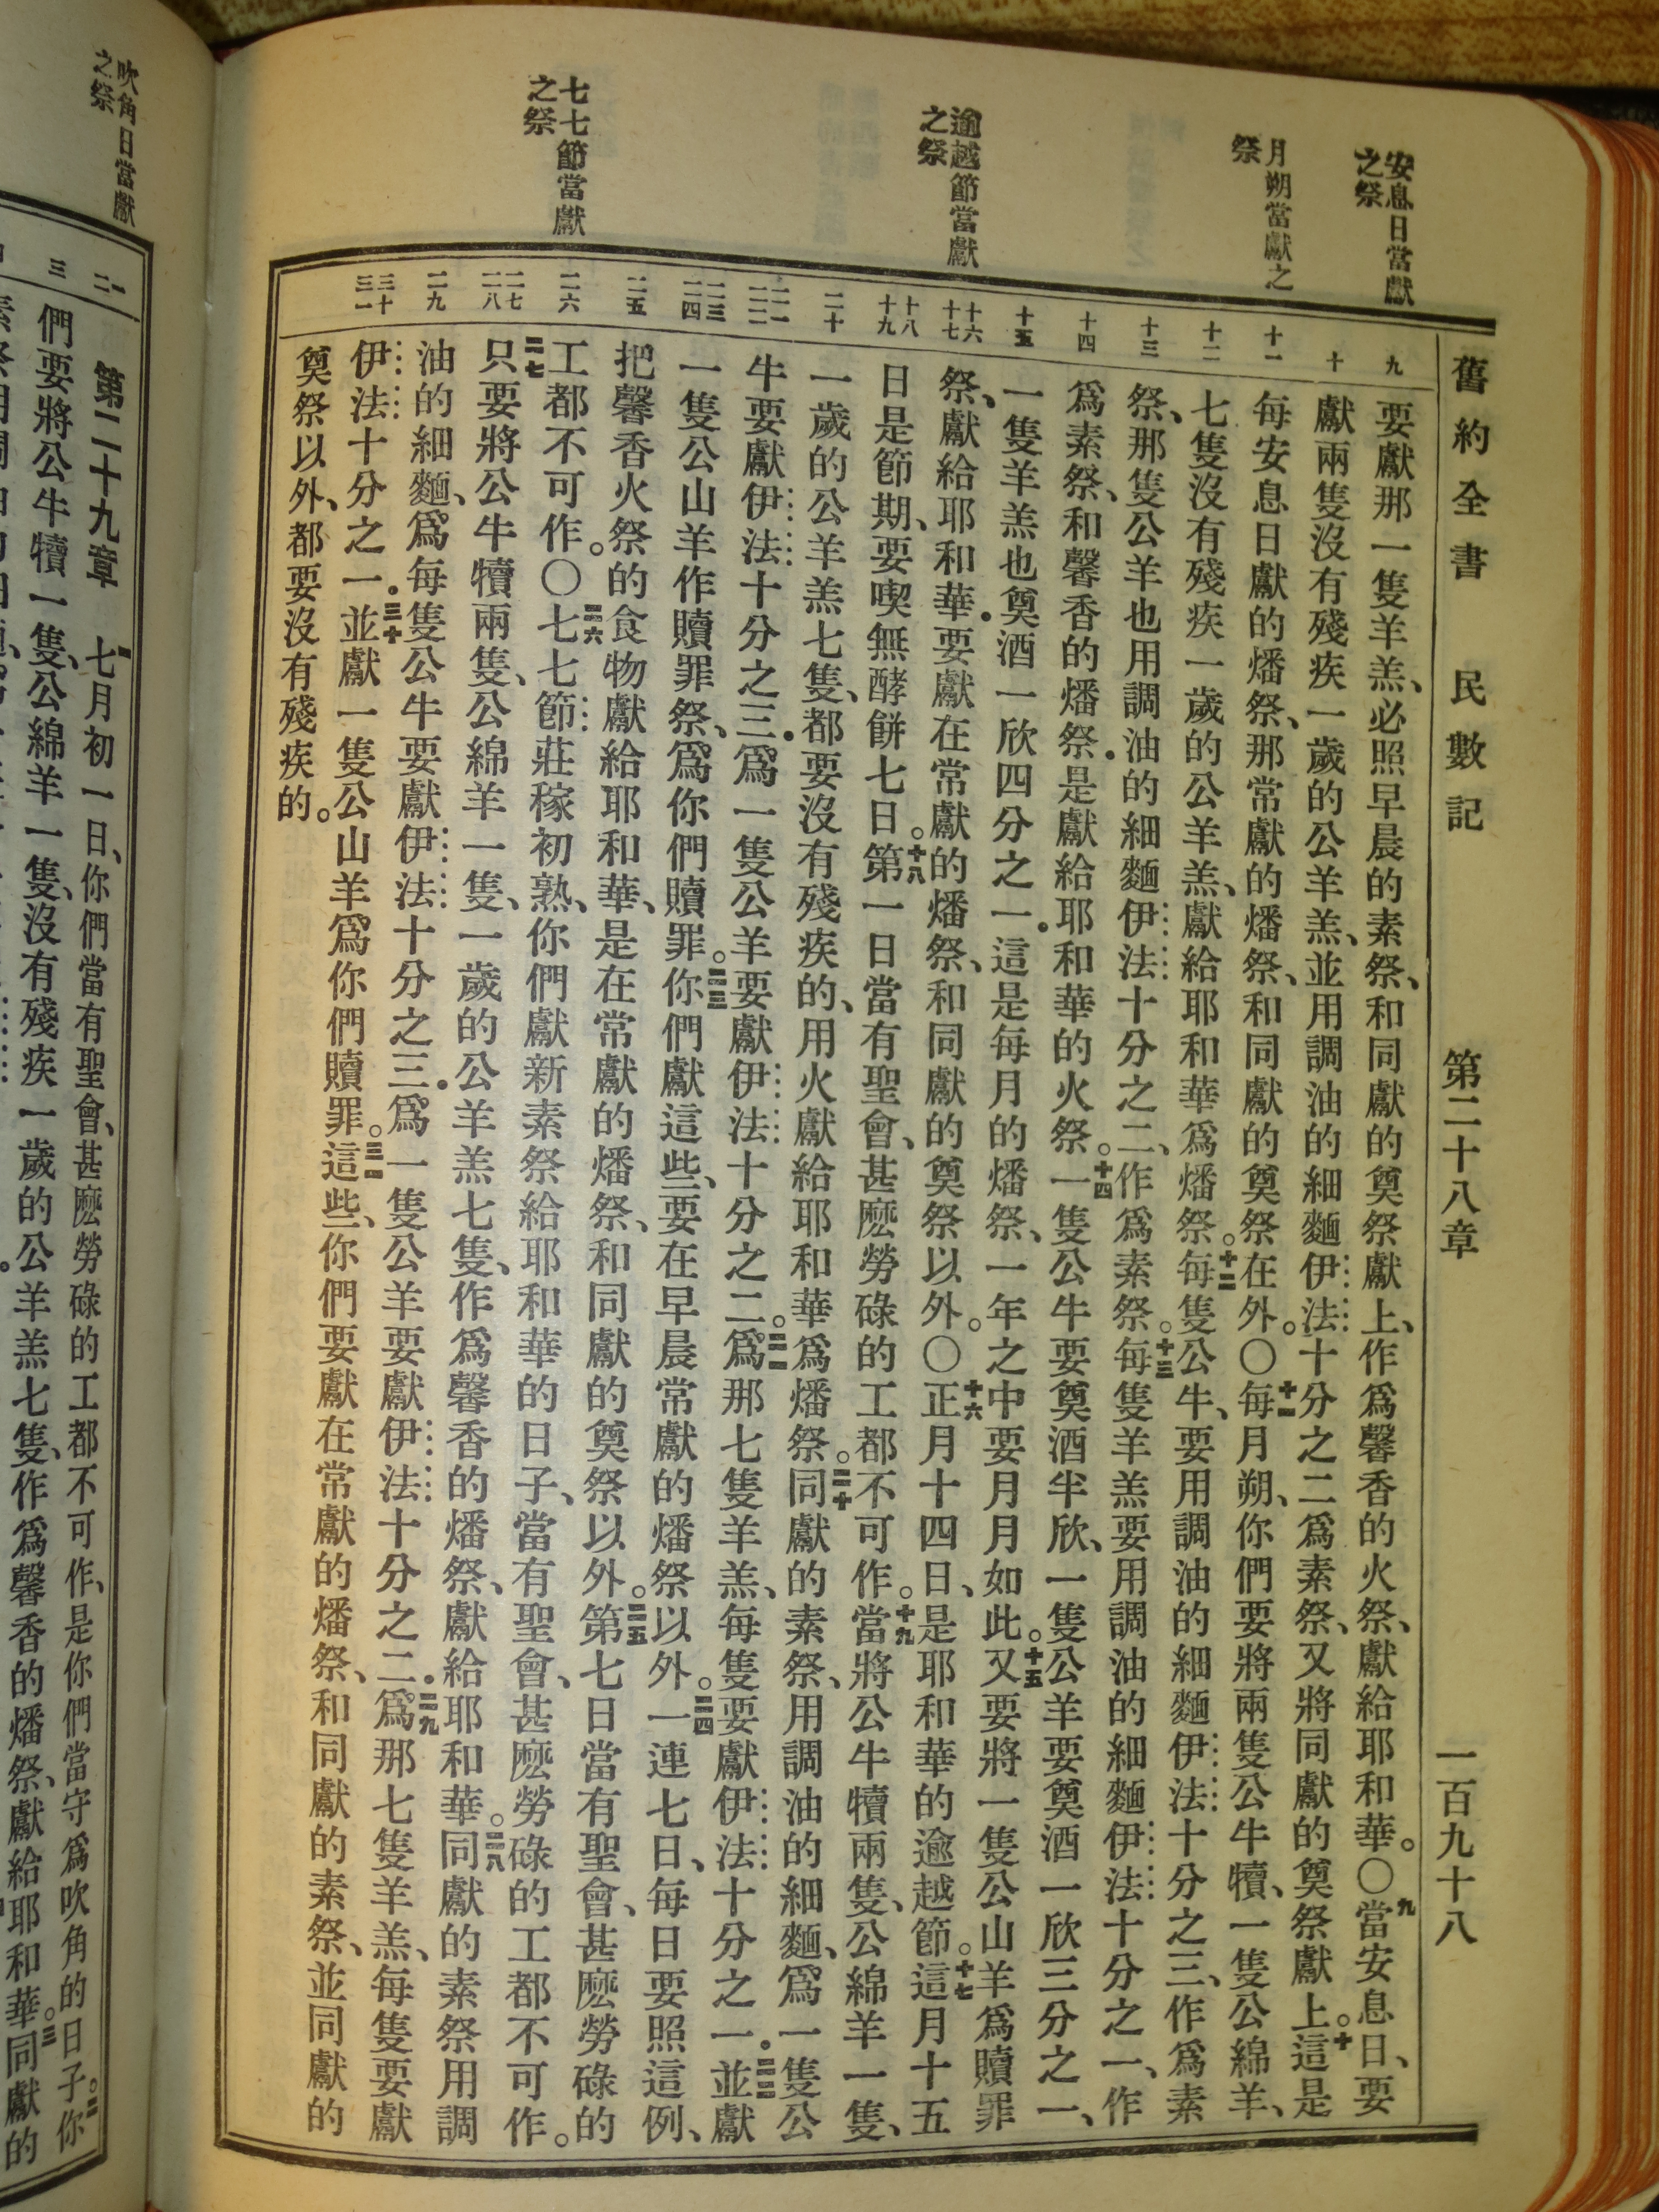 舊約全書　民數記　第二十八章　一百九十八
安息日當獻
之祭
月朔當獻之
祭
逾越節當獻
之祭
七七節當獻
之祭
九
十
十一
十二
十三
十四
十五
十六
十七
十八
十九
二十
二一
二二
二三
二四
二五
二六
二七
二八
二九
三十
三一
要獻那一隻羊羔、必照早晨的素祭、和同獻的奠祭獻上、作爲馨香的火祭、獻給耶和華。〇九當安息日、要
獻兩隻沒有殘疾一歲的公羊羔、並用調油的細麵伊法十分之二爲素祭、又將同獻的奠祭獻上。十這是
每安息日獻的燔祭、那常獻的燔祭、和同獻的奠祭在外。〇十一每月朔、你們要將兩隻公牛犢、一隻公綿羊、
七隻沒有殘疾一歲的公羊羔、獻給耶和華爲燔祭。十二每隻公牛、要用調油的細麵伊法十分之三、作爲素
祭、那隻公羊也用調油的細麵伊法十分之二、作爲素祭。十三每隻羊羔要用調油的細麵伊法十分之一、作
爲素祭、和馨香的燔祭．是獻給耶和華的火祭。十四一隻公牛要奠酒半欣、一隻公羊要奠酒一欣三分之一、
一隻羊羔也奠酒一欣四分之一．這是每月的燔祭、一年之中要月月如此。十五又要將一隻公山羊爲贖罪
祭、獻給耶和華．要獻在常獻的燔祭、和同獻的奠祭以外。〇十六正月十四日、是耶和華的逾越節。十七這月十五
日是節期、要喫無酵餅七日。十八第一日當有聖會、甚麽勞碌的工都不可作。十九當將公牛犢兩隻、公綿羊一隻、
一歲的公羊羔七隻、都要沒有殘疾的、用火獻給耶和華爲燔祭。二十同獻的素祭、用調油的細麵、爲一隻公
牛要獻伊法十分之三．爲一隻公羊要獻伊法十分之二。二一爲那七隻羊羔、每隻要獻伊法十分之一．二二並獻
一隻公山羊作贖罪祭、爲你們贖罪。二三你們獻這些、要在早晨常獻的燔祭以外。二四一連七日、每日要照這例、
把馨香火祭的食物獻給耶和華、是在常獻的燔祭、和同獻的奠祭以外。二五第七日當有聖會、甚麽勞碌的
工都不可作。〇二六七七節莊稼初熟、你們獻新素祭給耶和華的日子、當有聖會、甚麽勞碌的工都不可作。
二七只要將公牛犢兩隻、公綿羊一隻、一歲的公羊羔七隻、作爲馨香的燔祭、獻給耶和華。二八同獻的素祭用調
油的細麵、爲每隻公牛要獻伊法十分之三．爲一隻公羊要獻伊法十分之二．二九爲那七隻羊羔、每隻要獻
伊法十分之一．三十並獻一隻公山羊爲你們贖罪。三一這些、你們要獻在常獻的燔祭、和同獻的素祭、並同獻的
奠祭以外、都要沒有殘疾的。
吹角日當獻
之祭
一
二
三
第二十九章　七月初一日、你們當有聖會、甚麽勞碌的工都不可作、是你們當守爲吹角的日子。二你
們要將公牛犢一隻、公綿羊一隻、沒有殘疾一歲的公羊羔七隻、作爲馨香的燔祭、獻給耶和華。三同獻的